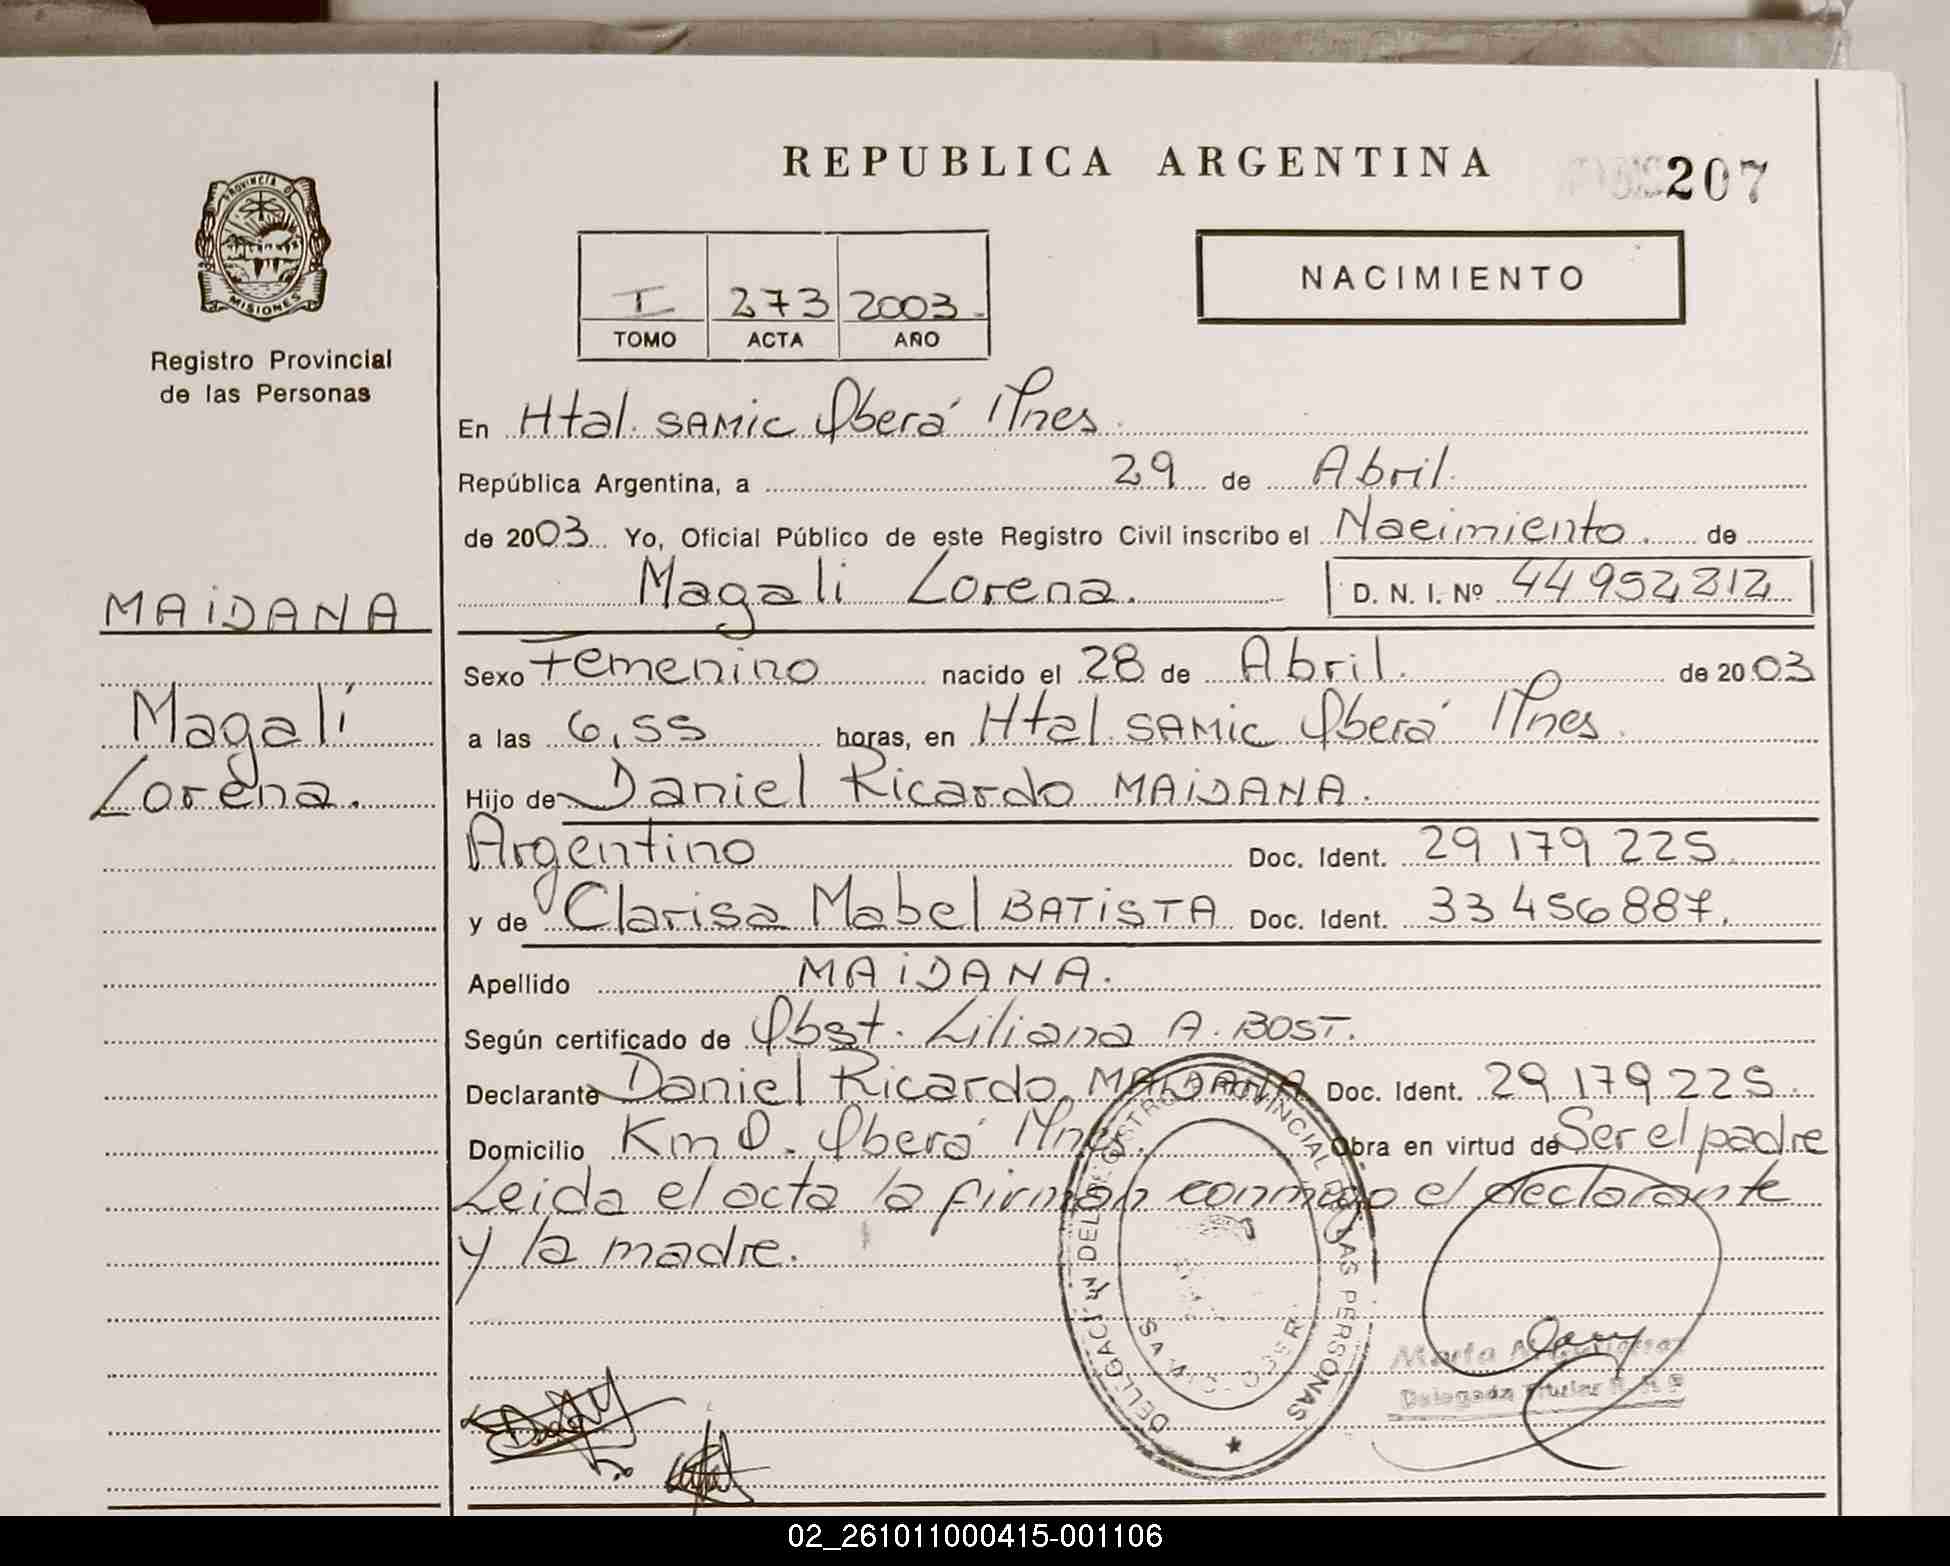 REPUBLICA ARGENTINA
207
PROVINCIA D
MISIONES
Registro Provincial
de las Personas
I 273 2003
TOMO ACTA AÑO
NACIMIENTO
En Htal. SAMIC Oberá Mnes.
República Argentina, a 29 de Abril.
de 2003 Yo, Oficial Público de este Registro Civil inscribo el Nacimiento. de
Magali Lorena. D. N. I. Nº 44 952 212
MAIDANA
Magalí
Lorena.
Sexo Femenino nacido el 28 de Abril. de 2003
a las 6,55 horas, en Htal. SAMIC Oberá Mnes.
Hijo de Daniel Ricardo MAIDANA.
Argentino Doc. Ident. 29 179 225.
y de Clarisa Mabel BATISTA Doc. Ident. 33 456 887.
Apellido MAIDANA.
Según certificado de Obst. Liliana A. BOST.
Declarante Daniel Ricardo MAIDANA Doc. Ident. 29 179 225.
Domicilio Km 0. Oberá Mnes. Obra en virtud de Ser el padre
Leida el acta la firman conmigo el declarante
y la madre.
DELEGACIÓN DEL REGISTRO PROVINCIAL DE LAS PERSONAS
Delegada Titular
02_261011000415-001106